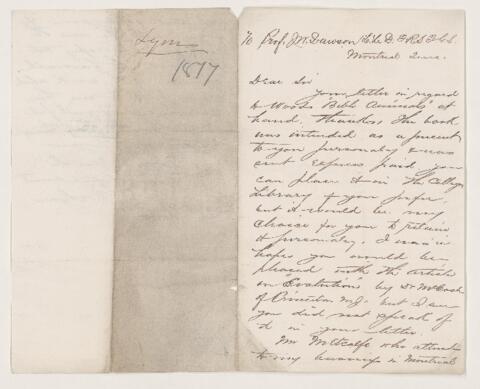 Lyon
1877
To Prof. J W. Dawson L.L.D. F.R.S. F.G.S.
Montreal Que.
Dear Sir
Your letter in regard
to Woods "Bible Animals" at
hand. Thanks. The book
was intended as a present
to you personally & was
sent Express paid you
can place it in the College
Library if you prefer,
but it would be my
choice for you to retain
it personally. I was in
hopes you would be
pleased with the article
on "Evolution" by Dr McCosh
of Princeton N.J. but I see
you did not speak of
it in your letter.
Mr Metcalfe who attends
to my business in Montreal